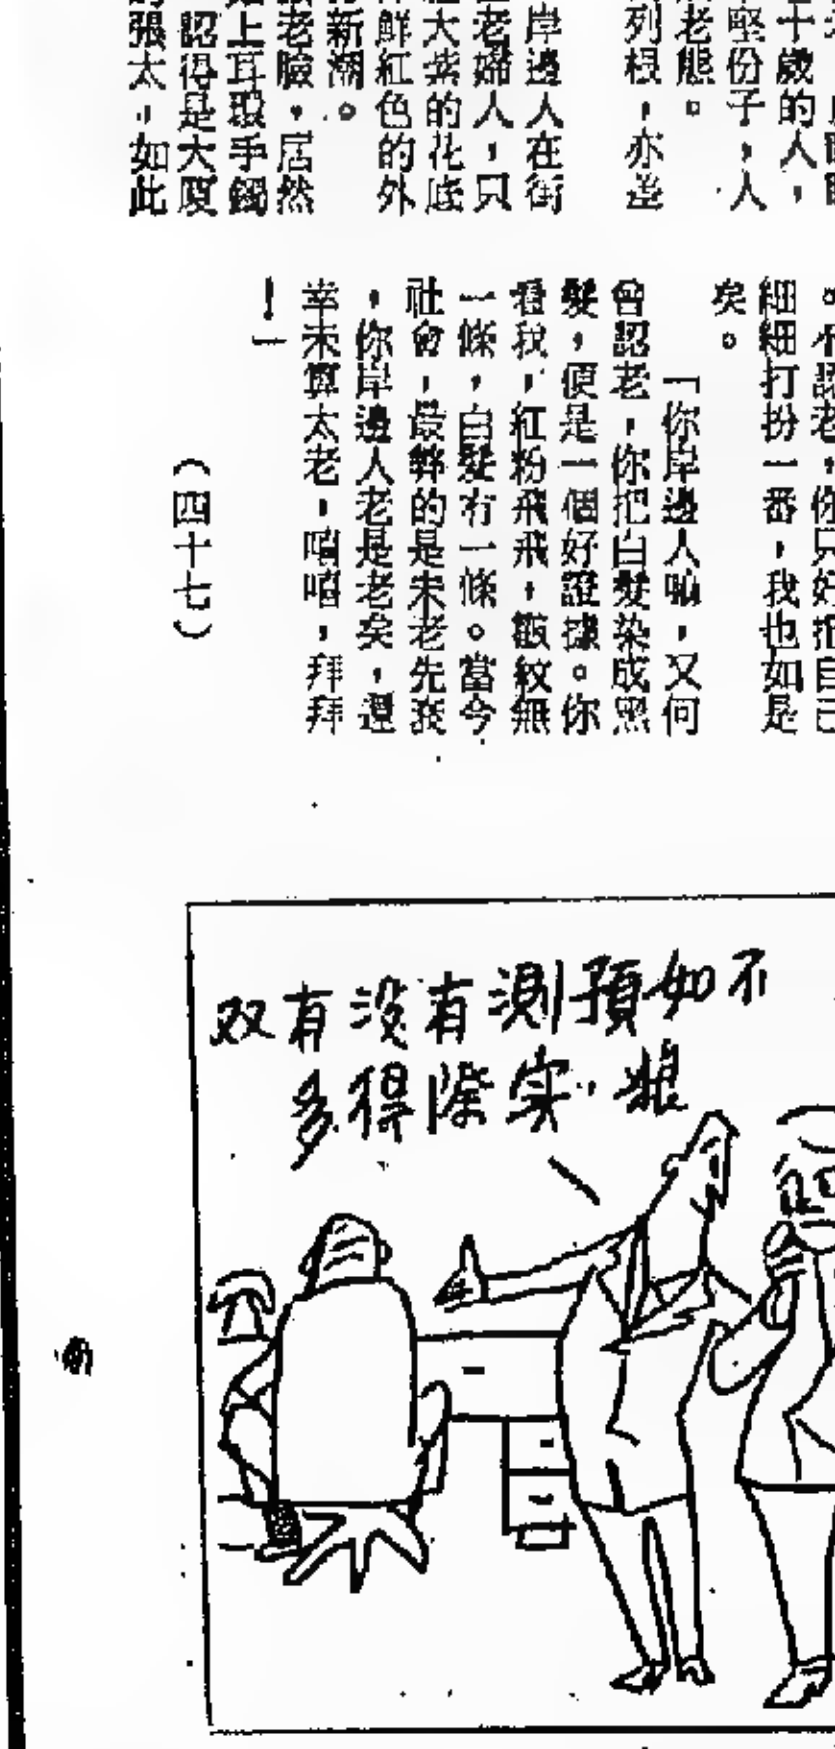 十歲的人，
堅份子，人
老態。
列根，亦差
岸邊人在街
老婦人，只
大紫的花底
鮮紅色的外
新潮。
老臉，居然
上耳環手鐲
認得是大廈
張太，如此
。不認老，你只好把自己
細細打扮一番，我也如是
矣。
「你岸邊人嘛，又何
曾認老，你把白髮染成黑
髮，便是一個好證據。你
看我，紅粉飛飛，皺紋無
一條，白髮冇一條。當今
社會，最弊的是未老先衰
，你岸邊人老是老矣，還
幸未算太老，嘻嘻，拜拜
！」
（四十七）
不如預測有没有双
狼，实際得多